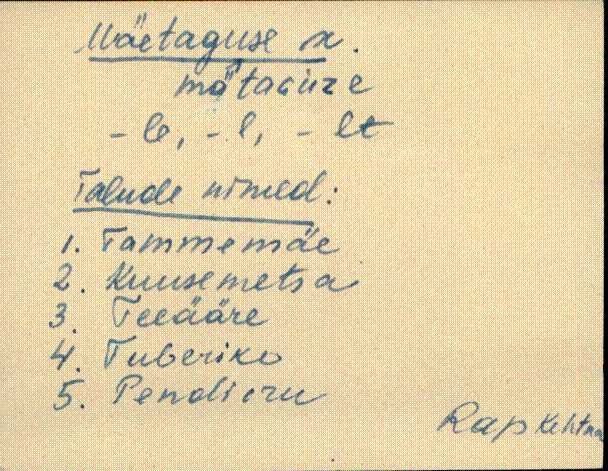 Mäetaguse n.
mätaguze
-le, -l, -lt
Talude nimed:
1. Tammemäe
2. Kuusemetsa
3. Teeääre
4. Tuberiko
5. Pendioru
Rap Kehtna